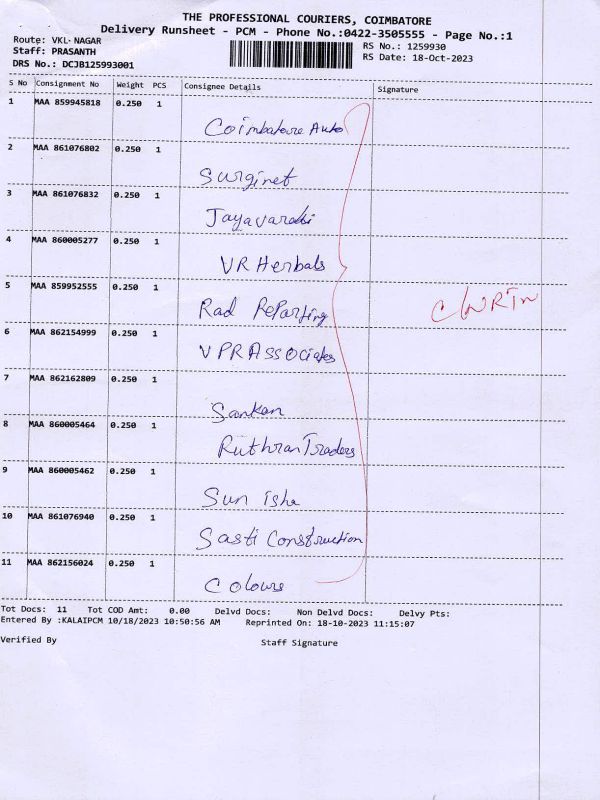 THE PROFESSIONAL COURIERS, COIMBATORE
Delivery Runsheet - PCM - Phone No.:0422-3505555 - Page No.:1
Route: VKL- NAGAR
RS No.: 1259930
Staff: PRASANTH
RS Date: 18-Oct-2023
DRS No.: DCJB125993001
S No Consignment No Weight PCS Consignee Details Signature
1 MAA 859945818 0.250 1
Coimbatore Auto
2 MAA 861076802 0.250 1
Surginet
3 MAA 861076832 0.250 1
4 MAA 860005277 0.250 1
VR Herbals
5 MAA 859952555 0.250 1
Rad RePorting
6 MAA 862154999 0.250 1
VPR Associates
7 MAA 862162809 0.250 1
Sankan
8 MAA 860005464 0.250 1
Ruthran Traders
9 MAA 860005462 0.250 1
Sun isha
10 MAA 861076940 0.250 1
Sasti Construction
11 MAA 862156024 0.250 1
Colours
Tot Docs: 11 Tot COD Amt: 0.00 Delvd Docs: Non Delvd Docs: Delvy Pts:
Entered By :KALAIPCM 10/18/2023 10:50:56 AM Reprinted On: 18-10-2023 11:15:07
Verified By Staff Signature